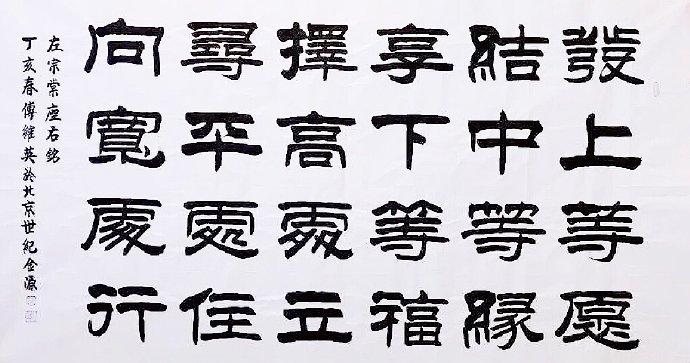 發上等愿
結中等緣
享下等福
擇高處立
尋平處住
向寬處行
左宗棠座右銘
丁亥春傅維英於北京世紀金源